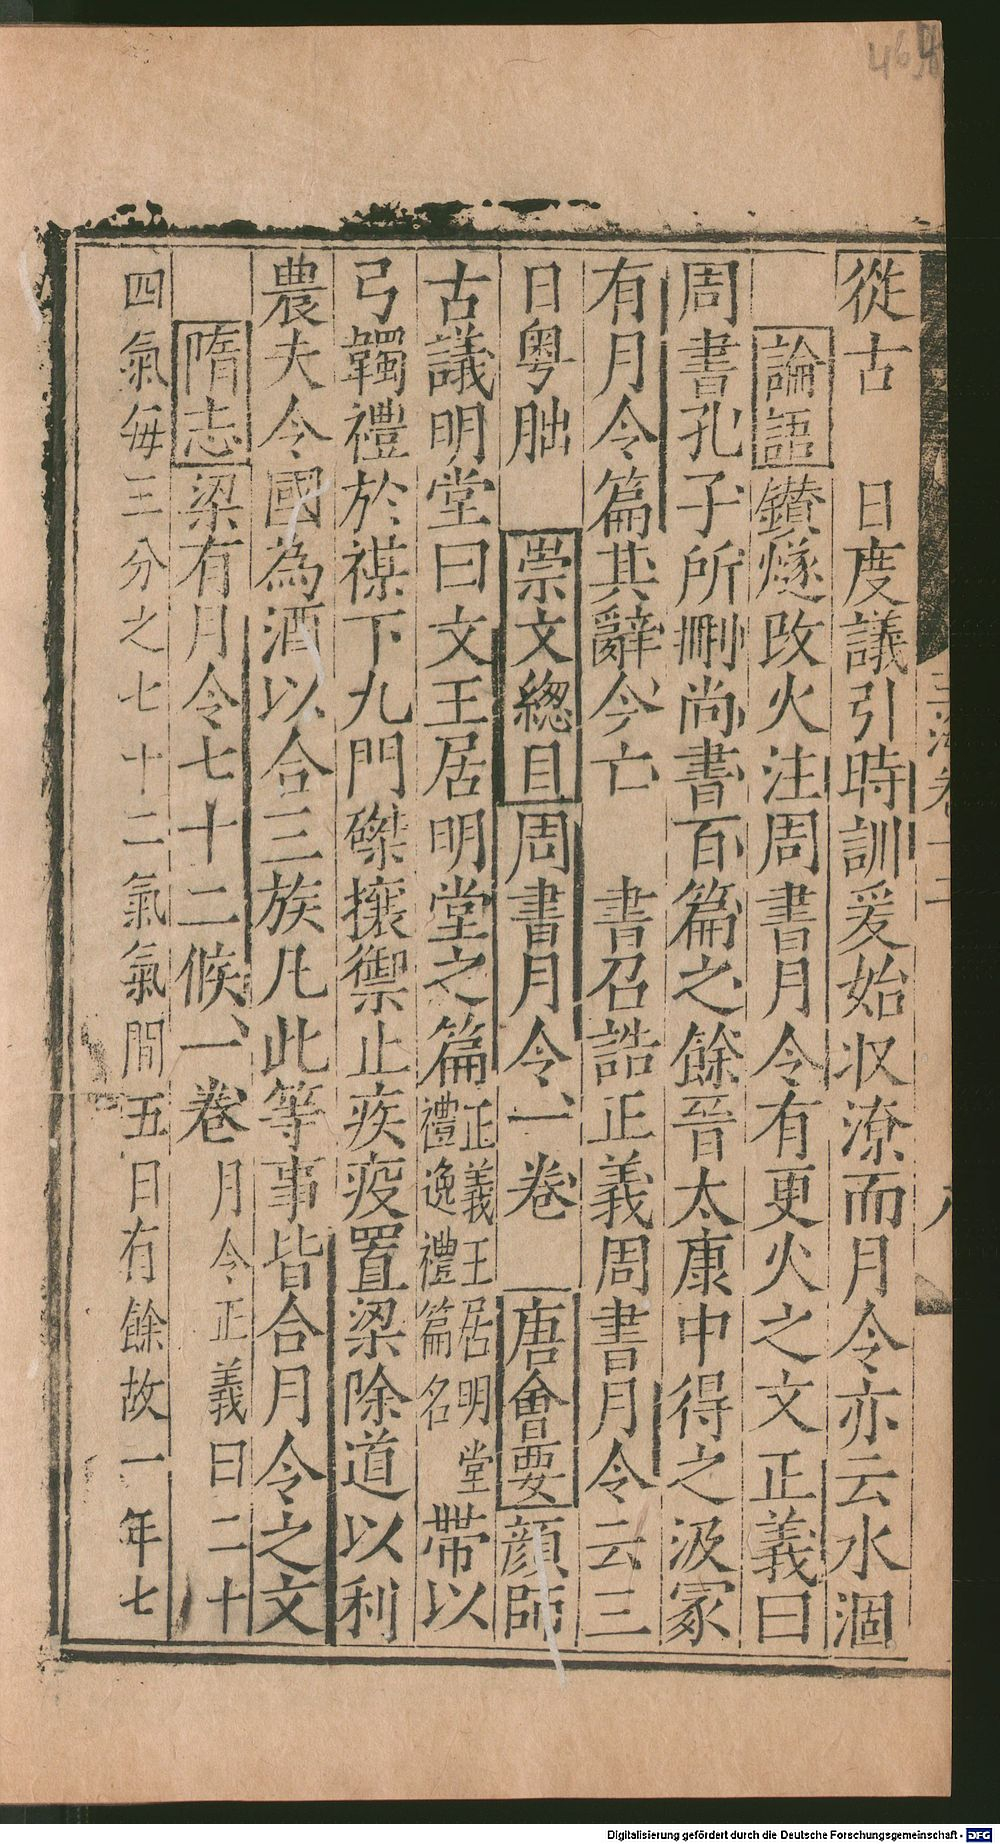 從古　日度議引時訓爰始収潦而月令亦云水涸
論語鑚燧改火注周書月令有更火之文正義曰
周書孔子所刪尚書百篇之餘晉太康中得之汲冢
有月令篇其辭今亡　書召誥正義周書月令云三
日粤朏　崇文緫目周書月令一卷　唐會要顔師
古議明堂曰文王居明堂之篇正義王居明堂禮逸禮篇名帶以
弓韣禮於禖下九門磔攘禦止疾疫置梁除道以利
農夫令國為酒以合三族凡此等事皆合月令之文
隋志梁有月令七十二候一卷月令正義曰二十
四氣每三分之七十二氣氣間五日有餘故一年七
Digitalisierung gefördert durch die Deutsche Forschungsgemeinschaft - DFG